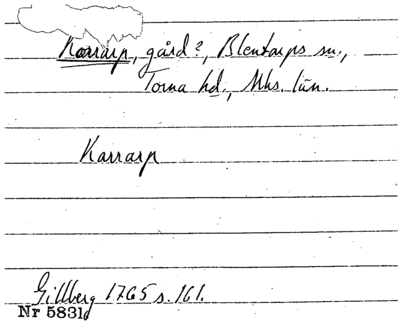 Karrarp, gård?, Blentarps sn.,
Torna hd., Mhs. län.
Karrarp
Gillberg 1765 s. 161.
Nr 5831